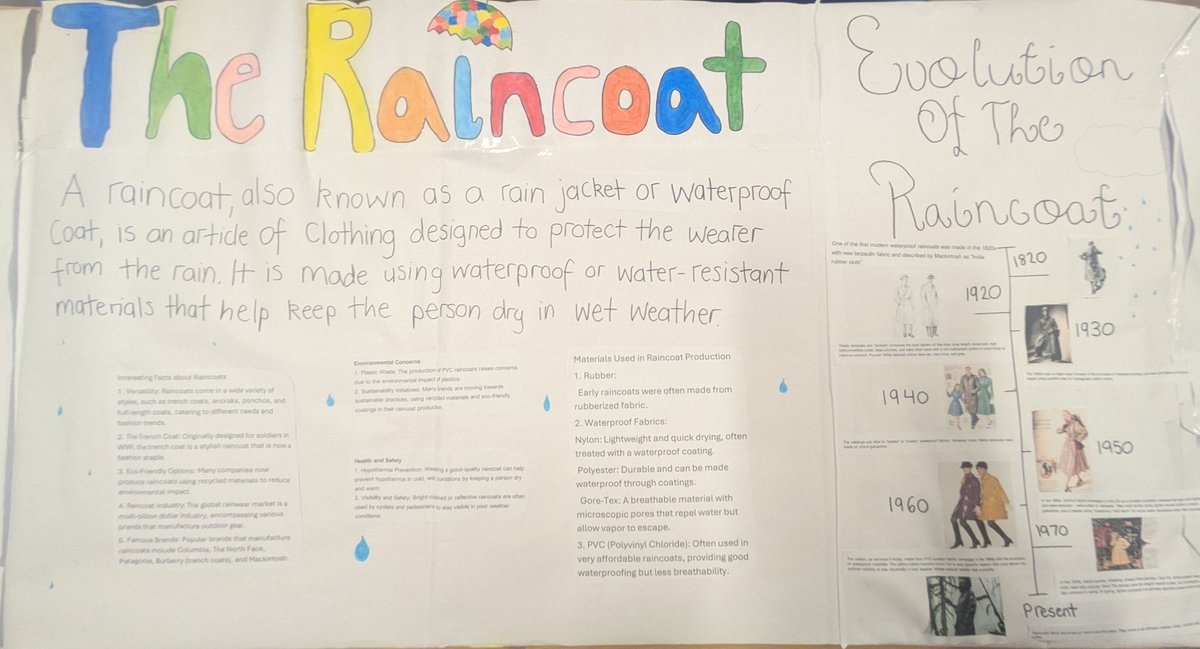 The Raincoat
A raincoat, also known as a rain jacket or waterproof
coat, is an article of clothing designed to protect the wearer
from the rain. It is made using waterproof or water-resistant
materials that help keep the person dry in wet weather.
Interesting Facts about Raincoats
1. Versatility: Raincoats come in a wide variety of
styles, such as trench coats, anoraks, ponchos, and
full-length coats, catering to different needs and
fashion trends.
2. The Trench Coat: Originally designed for soldiers in
WW, the trench coat is a stylish raincoat that is now a
fashion staple.
3. Eco-Friendly Options: Many companies now
produce raincoats using recycled materials to reduce
environmental impact.
4. Raincoat Industry: The global rainwear market is a
multi-billion dollar industry, encompassing various
brands that manufacture outdoor gear.
5. Famous Brands: Popular brands that manufacture
raincoats include Columbia, The North Face,
Patagonia, Burberry (trench coats), and Mackintosh.
Environmental Concerns
1. Plastic Waste: The production of PVC raincoats raises concerns
due to the environmental impact of plastics.
2. Sustainability Initiatives: Many brands are moving towards
sustainable practices, using recycled materials and eco-friendly
coatings in their raincoat production.
Health and Safety
1. Hypothermia Prevention: Wearing a good-quality raincoat can help
prevent hypothermia in cold, wet conditions by keeping a person dry
and warm.
2. Visibility and Safety: Bright-colored or reflective raincoats are often
used by cyclists and pedestrians to stay visible in poor weather
conditions.
Materials Used in Raincoat Production
1. Rubber:
Early raincoats were often made from
rubberized fabric.
2. Waterproof Fabrics:
Nylon: Lightweight and quick drying, often
treated with a waterproof coating.
Polyester: Durable and can be made
waterproof through coatings.
Gore-Tex: A breathable material with
microscopic pores that repel water but
allow vapor to escape.
3. PVC (Polyvinyl Chloride): Often used in
very affordable raincoats, providing good
waterproofing but less breathability.
Evolution
Of The
Raincoat
One of the first modern waterproof raincoats was made in the 1820s
with new tarpaulin fabric and described by Mackintosh as "India
rubber cloth".
1820
1920
1930
1940
1950
1960
1970
Present